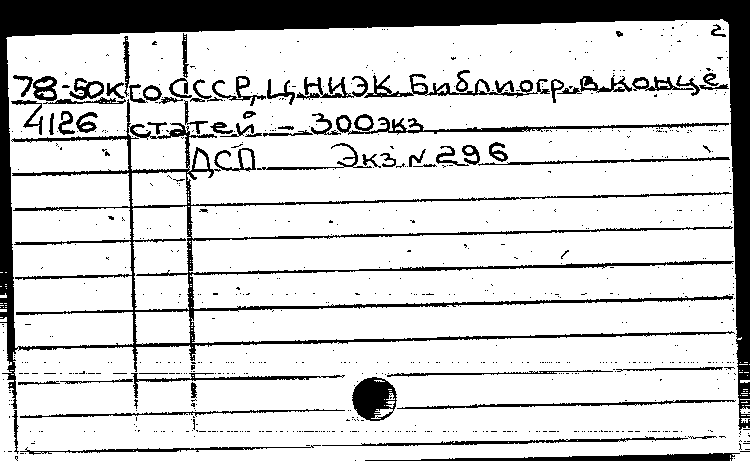 2
78-50к го СССР, ЦНИЭК. Библиогр. в конце
4126 статей – 300 экз
ДСП Экз. N 296